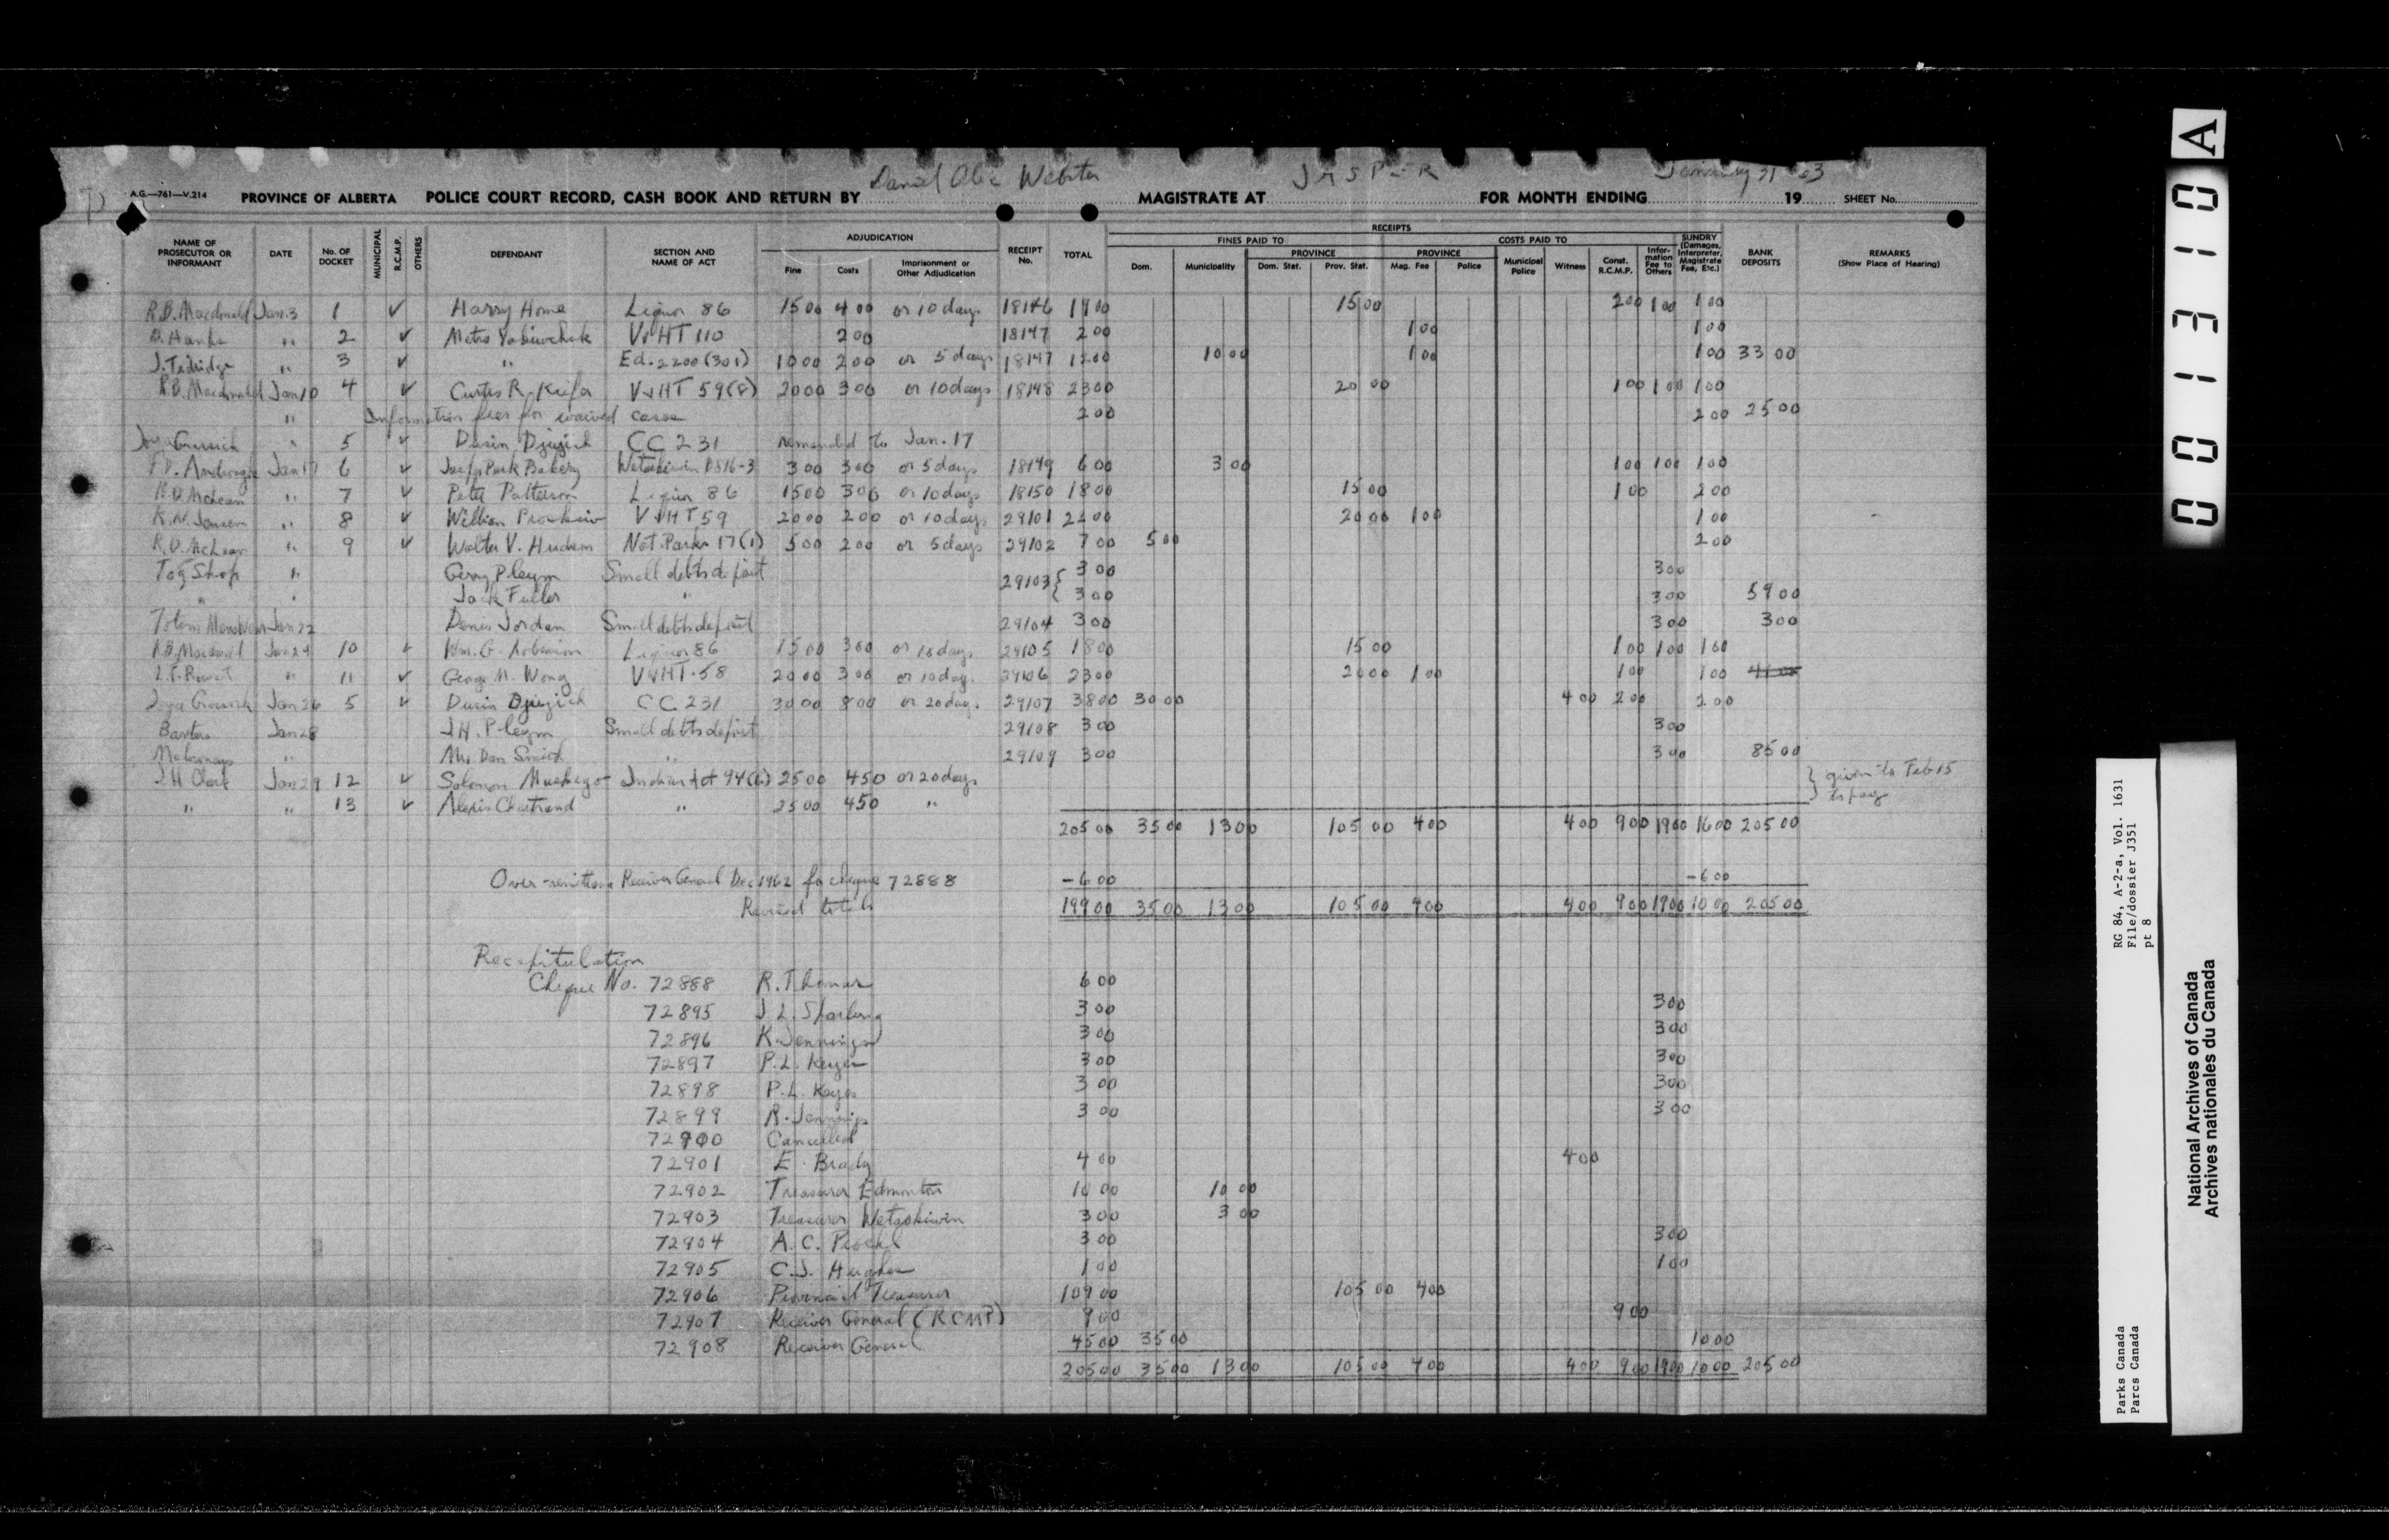 Daniel Olie Webster JASPER January 31 63
A.G.—761—V.214 PROVINCE OF ALBERTA POLICE COURT RECORD, CASH BOOK AND RETURN BY MAGISTRATE AT FOR MONTH ENDING 19 SHEET No.
NAME OF PROSECUTOR OR INFORMANT DATE No. OF DOCKET MUNICIPAL R.C.M.P. OTHERS DEFENDANT SECTION AND NAME OF ACT ADJUDICATION Fine Costs Imprisonment or Other Adjudication RECEIPT No. TOTAL RECEIPTS FINES PAID TO Dom. Municipality PROVINCE Dom. Stat. Prov. Stat. COSTS PAID TO PROVINCE Mag. Fee Police Municipal Police Witness Const. R.C.M.P. Information Fee to Others SUNDRY (Damages, Interpreter, Magistrate Fee, Etc.) BANK DEPOSITS REMARKS (Show Place of Hearing)
R.B. Macdonald Jan. 3 1 ✓ Harry Home Liquor 86 15 00 4 00 or 10 days 18146 19 00 15 00 2 00 1 00 1 00
Hanks " 2 ✓ Metro V&HT 110 2 00 18147 2 00 1 00 1 00
J. " 3 ✓ " Ed. 2200 (301) 10 00 2 00 or 5 days 18147 12 00 10 00 1 00 1 00 33 00
R.B. Macdonald Jan 10 4 ✓ Curtis R. V&HT 59(8) 20 00 3 00 or 10 days 18148 23 00 20 00 1 00 1 00 1 00
" Information fees for waived cases 2 00 2 00 25 00
" 5 ✓ Dusin Djujich CC 231 remanded to Jan. 17
Jan 17 6 ✓ Jasper Park Bakery Wetaskiwin 3 00 3 00 or 5 days 18149 6 00 3 00 1 00 1 00 1 00
R.D. McLean " 7 ✓ Peter Patterson Liquor 86 15 00 3 00 or 10 days 18150 18 00 15 00 1 00 2 00
K.N. Jensen " 8 ✓ William V&HT 59 20 00 2 00 or 10 days 29101 22 00 20 00 1 00 1 00
R.D. McLean " 9 ✓ Walter V. Hudson Nat. Parks 17(1) 5 00 2 00 or 5 days 29102 7 00 5 00 2 00
Tog Shop " Gerry Pleym Small debts deposit 29103 { 3 00 3 00
" " Jack Fuller " 3 00 3 00 59 00
Totem Jan 22 Denis Jordan Small debts deposit 29104 3 00 3 00 3 00
R.B. Macdonald Jan 24 10 ✓ Wm. G. Robinson Liquor 86 15 00 3 00 or 10 days 29105 18 00 15 00 1 00 1 00 1 00
" 11 ✓ George N. Wong V&HT. 58 20 00 3 00 or 10 days 29106 23 00 20 00 1 00 1 00 1 00 41 00
Jan 26 5 ✓ Dusin Djujich C.C. 231 30 00 8 00 or 20 days 29107 38 00 30 00 4 00 2 00 2 00
Baxters Jan 28 J.H. Pleym Small debts deposit 29108 3 00 3 00
" Mr. Dan Smith " 29109 3 00 3 00 85 00
J.H. Clark Jan 29 12 ✓ Solomon Muskego Indian Act 94(b) 25 00 4 50 or 20 days } given to Feb 15
" " 13 ✓ Alexis Chartrand " 25 00 4 50 " to pay
205 00 35 00 13 00 105 00 4 00 4 00 9 00 19 00 16 00 205 00
Over-remittance Receiver General Dec 1962 for cheque 72888 -6 00 -6 00
Revised totals 199 00 35 00 13 00 105 00 4 00 4 00 9 00 19 00 10 00 205 00
Recapitulation
Cheque No. 72888 R. Thomas 6 00
72895 J.L. Sparling 3 00 3 00
72896 K. Jennings 3 00 3 00
72897 P.L. Keyes 3 00 3 00
72898 P.L. Keyes 3 00 3 00
72899 R. Jennings 3 00 3 00
72900 Cancelled
72901 E. Brady 4 00 4 00
72902 Treasurer Edmonton 10 00 10 00
72903 Treasurer Wetaskiwin 3 00 3 00
72904 A.C. 3 00 3 00
72905 C.J. Hughes 1 00 1 00
72906 Provincial Treasurer 109 00 105 00 4 00
72907 Receiver General (RCMP) 9 00 9 00
72908 Receiver General 45 00 35 00 10 00
205 00 35 00 13 00 105 00 4 00 4 00 9 00 19 00 10 00 205 00
001310 A
RG 84, A-2-a, Vol. 1631
File/dossier J351
pt 8
Parks Canada
Parcs Canada
National Archives of Canada
Archives nationales du Canada